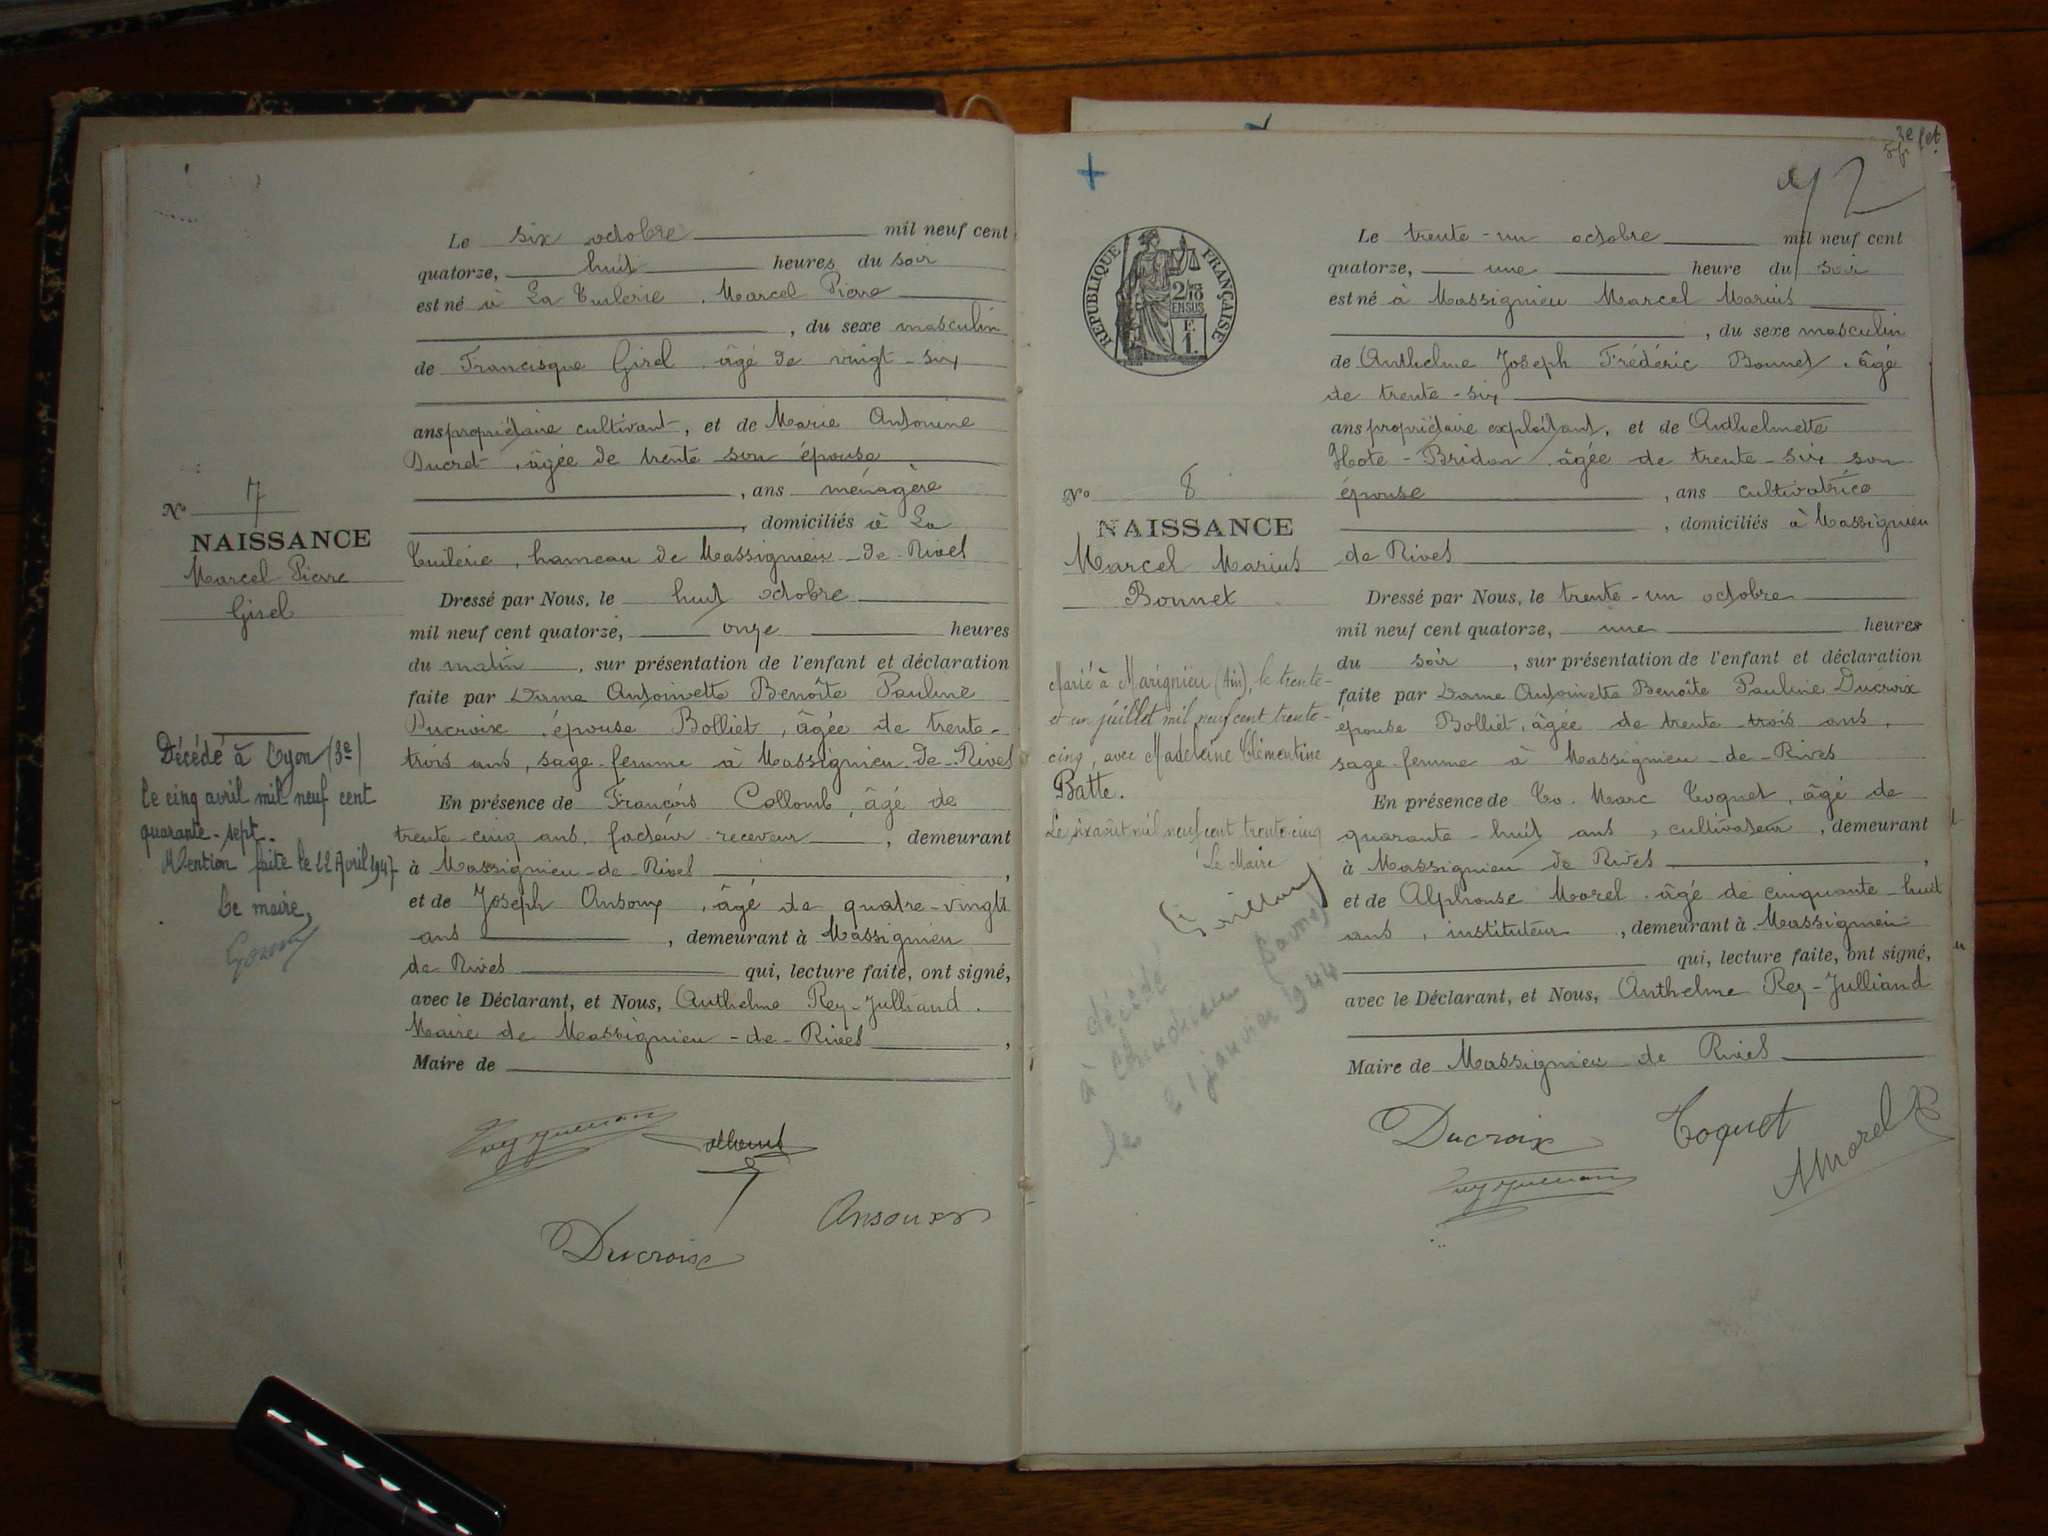 Le six octobre mil neuf cent
quatorze, huit heures du soir
est né à La Tuilerie, Marcel Pierre
, du sexe masculin
de Francisque Girel, âgé de vingt-six
ans propriétaire cultivant, et de Marie Antonine
Ducret, âgée de trente son épouse
, ans ménagère
, domiciliés à La
Tuilerie, hameau de Massignieu-de-Rives
Dressé par Nous, le huit octobre
mil neuf cent quatorze, onze heures
du matin, sur présentation de l'enfant et déclaration
faite par Dame Antoinette Benoîte Pauline
Ducroix, épouse Bolliet, âgée de trente-
trois ans, sage-femme à Massignieu-de-Rives
En présence de François Collomb, âgé de
trente-cinq ans, facteur-receveur, demeurant
à Massignieu-de-Rives,
et de Joseph Ansoux, âgé de quatre-vingts
ans, demeurant à Massignieu
de Rives qui, lecture faite, ont signé,
avec le Déclarant, et Nous, Anthelme Rey-Julliand.
Maire de Massignieu-de-Rives,
Maire de
Ducroix
Ansoux
No 7
NAISSANCE
Marcel-Pierre
Girel
Décédé à Lyon (3e)
le cinq avril mil neuf cent
quarante-sept.
Mention faite le 22 Avril 1947
Le maire,
3e
Le trente-un octobre mil neuf cent
quatorze, une heure du soir
est né à Massignieu Marcel Marius
, du sexe masculin
de Anthelme Joseph Frédéric Bonnet, âgé
de trente-six
ans propriétaire exploitant, et de Anthelmette
Hote-Bridon, âgée de trente-six son
épouse, ans cultivatrice
, domiciliés à Massignieu
de Rives
Dressé par Nous, le trente-un octobre
mil neuf cent quatorze, une heures
du soir, sur présentation de l'enfant et déclaration
faite par Dame Antoinette Benoîte Pauline Ducroix
épouse Bolliet, âgée de trente-trois ans,
sage-femme à Massignieu-de-Rives
En présence de Marc Coquet, âgé de
quarante-huit ans, cultivateur, demeurant
à Massignieu de Rives,
et de Alphonse Morel, âgé de cinquante-huit
ans, instituteur, demeurant à Massignieu
qui, lecture faite, ont signé,
avec le Déclarant, et Nous, Anthelme Rey-Julliand
Maire de Massignieu de Rives
Ducroix
Coquet
AMorel
RÉPUBLIQUE FRANÇAISE
2/10
EN SUS
F.
1.
No 8
NAISSANCE
Marcel Marius
Bonnet
Marié à Marignieu (Ain), le trente-
et un juillet mil neuf cent trente-
cinq, avec Madeleine Clémentine
Batte.
Le six août mil neuf cent trente-cinq
Le Maire
décédé
à Chindrieux Savoie
le 21 janvier 1944